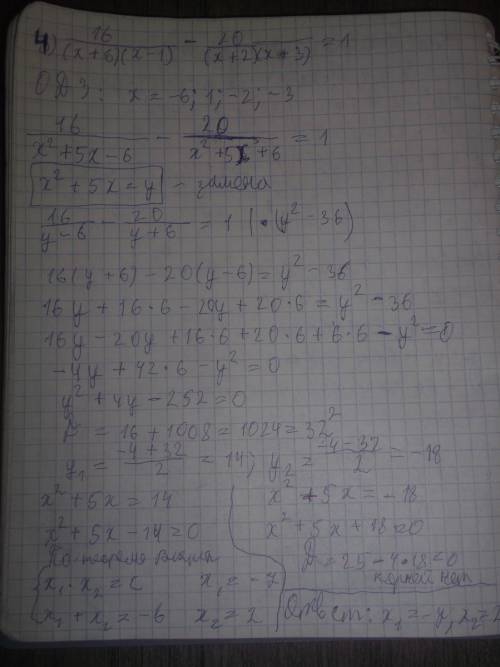 4) 16/((x+6)(x-1)) - 20/((x+2)(x+3) = 1
ОДЗ: x = -6; 1; -2; -3
16/(x²+5x-6) - 20/(x²+5x+6) = 1
x²+5x=y - замена
16/(y-6) - 20/(y+6) = 1 | · (y²-36)
16(y+6) - 20(y-6) = y² - 36
16y + 16·6 - 20y + 20·6 = y² - 36
16y - 20y + 16·6 + 20·6 + 6·6 - y² = 0
-4y + 42·6 - y² = 0
y² + 4y - 252 = 0
D = 16 + 1008 = 1024 = 32²
y₁ = (-4+32)/2 = 14; y₂ = (-4-32)/2 = -18
x² + 5x = 14
x² + 5x - 14 = 0
По теореме Виета
x₁ · x₂ = c x₁ = -7
x₁ + x₂ = -b x₂ = 2
x² + 5x = -18
x² + 5x + 18 = 0
D = 25 - 4·18 = 0
корней нет
Ответ: x₁ = -7, x₂ = 2